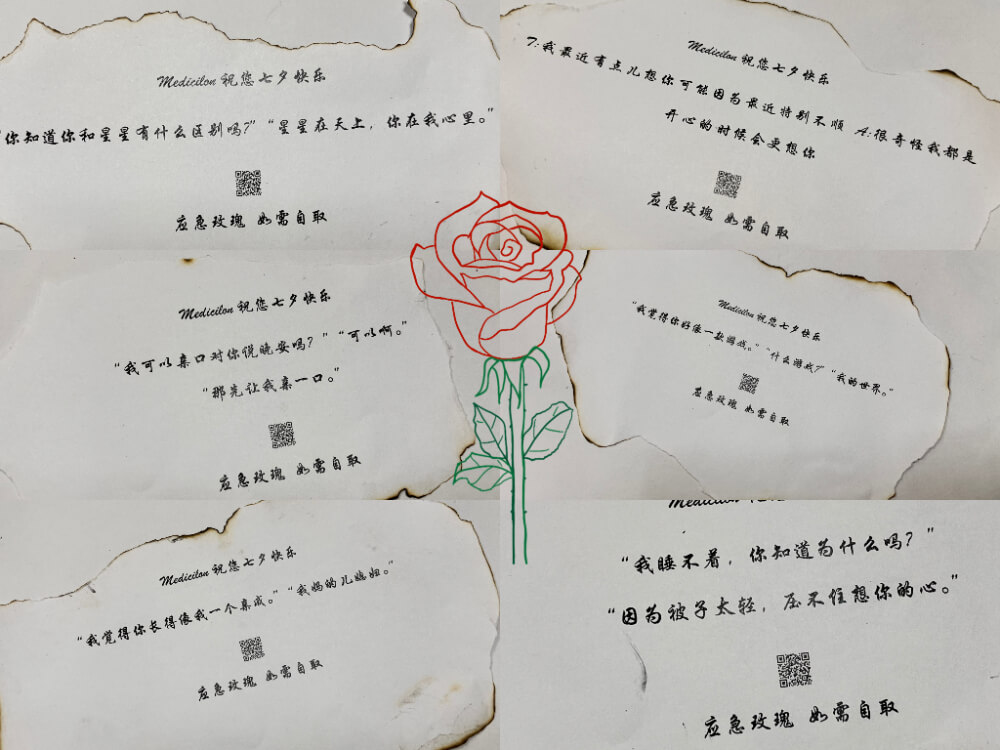 Medicilon 祝您七夕快乐
你知道你和星星有什么区别吗?”“星星在天上，你在我心里。”
应急玫瑰 如需自取
Medicilon 祝您七夕快乐
T:我最近有点儿想你可能因为最近特别不顺 A:很奇怪我都是
开心的时候会更想你
应急玫瑰 如需自取
Medicilon 祝您七夕快乐
“我可以亲口对你说晚安吗？”“可以啊。”
“那先让我亲一口。”
应急玫瑰 如需自取
Medicilon 祝您七夕快乐
“我觉得你好像一款游戏。”“什么游戏?”“我的世界。”
应急玫瑰 如需自取
Medicilon 祝您七夕快乐
“我觉得你长得像我一个亲戚。”“我妈的儿媳妇。”
应急玫瑰 如需自取
Medicilon
“我睡不着，你知道为什么吗？”
“因为被子太轻，压不住想你的心。”
应急玫瑰 如需自取